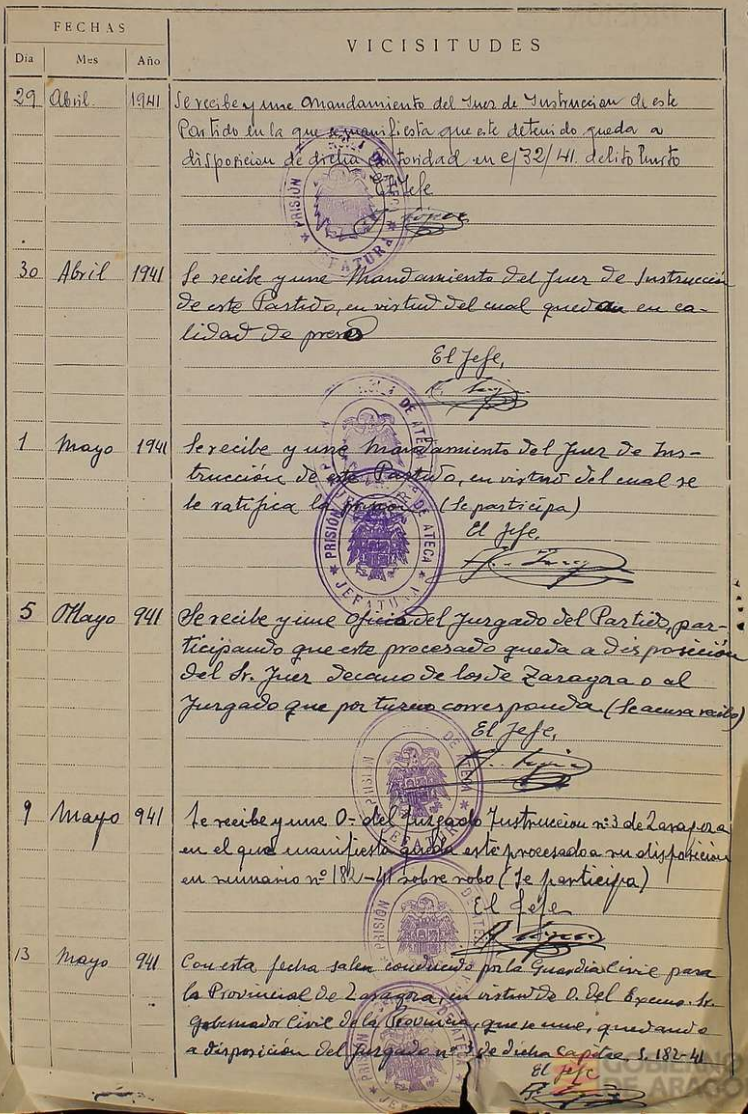 FECHAS
VICISITUDES
Dia Mes Año
29 Abril. 1941 Se recibe y une Mandamiento del Juez de Instruccion de este
Partido en la que se manifiesta que este detenido queda a
disposicion de dicha Autoridad en e/32/41. delito Hurto
El Jefe
PRISIÓN
JEFATURA
30 Abril 1941 Se recibe y une Mandamiento del Juez de Instrucción
de este Partido, en virtud del cual quedan en ca-
lidad de preso
El Jefe,
DE ATECA
1 Mayo 1941 Se recibe y une Mandamiento del Juez de Ins-
trucción de este Partido, en virtud del cual se
le ratifica la prision (Se participa)
El Jefe,
PRISIÓN DE ATECA
JEFATURA
5 Mayo 941 Se recibe y une Oficio del Juzgado del Partido, par-
ticipando que este procesado queda a disposición
del Sr. Juez Decano de los de Zaragoza o al
Juzgado que por turno corresponda (Se acusa recibo)
El Jefe,
PRISIÓN DE ATECA
JEFATURA
9 Mayo 941 Se recibe y une O- del Juzgado Instruccion nº 3 de Zaragoza
en el que manifiesta queda este procesado a su disposicion
en sumario nº 182-41 sobre robo (Se participa)
El Jefe
PRISIÓN DE ATECA
13 Mayo 941 Con esta fecha sale conducido por la Guardia Civil para
la Provincial de Zaragoza, en virtud de O. del Excmo. Sr.
Gobernador Civil de la Provincia, que se une, quedando
a disposición del Juzgado nº de dicha Capital S. 182-41
El Jefe
GOBIERNO
DE ARAGON